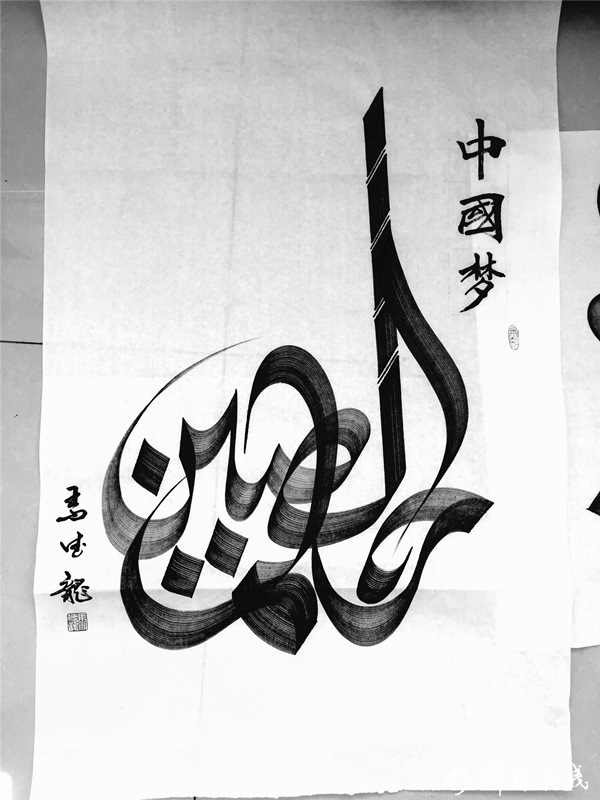 中國梦
حلم الصين
馬德龍